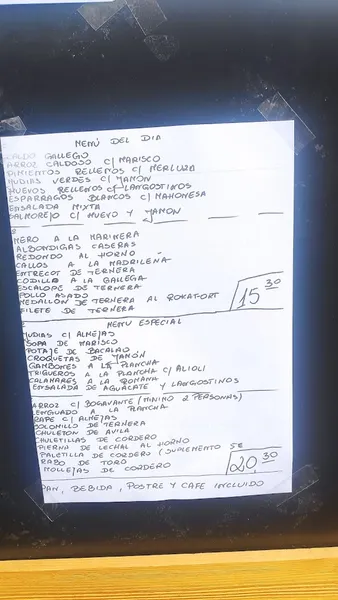 MENÚ DEL DIA
CALDO GALLEGO
ARROZ CALDOSO C/ MARISCO
PIMIENTOS RELLENOS C/ MERLUZA
JUDIAS VERDES C/ JAMON
HUEVOS RELLENOS C/ LANGOSTINOS
ESPARRAGOS BLANCOS C/ MAHONESA
ENSALADA MIXTA
SALMOREJO C/ HUEVO Y JAMON
MERO A LA MARINERA
ALBONDIGAS CASERAS
REDONDO AL HORNO
CALLOS A LA MADRILEÑA
ENTRECOT DE TERNERA
CODILLO A LA GALLEGA
ESCALOPE DE TERNERA
POLLO ASADO
MEDALLON DE TERNERA AL ROKAFORT
FILETE DE TERNERA
15 30
MENU ESPECIAL
JUDIAS C/ ALMEJAS
SOPA DE MARISCO
POTAJE DE BACALAO
CROQUETAS DE JAMÓN
GAMBONES A LA PLANCHA
TRIGUEROS A LA PLANCHA C/ ALIOLI
CALAMARES A LA ROMANA
ENSALADA DE AGUACATE Y LANGOSTINOS
ARROZ C/ BOGAVANTE (MINIMO 2 PERSONAS)
LENGUADO A LA PLANCHA
RAPE C/ ALMEJAS
SOLOMILLO DE TERNERA
CHULETON DE AVILA
CHULETILLAS DE CORDERO
PIERNA DE LECHAL AL HORNO
PALETILLA DE CORDERO (SUPLEMENTO 5€
RABO DE TORO
MOLLEJAS DE CORDERO
20 30
PAN, BEBIDA, POSTRE Y CAFE INCLUIDO